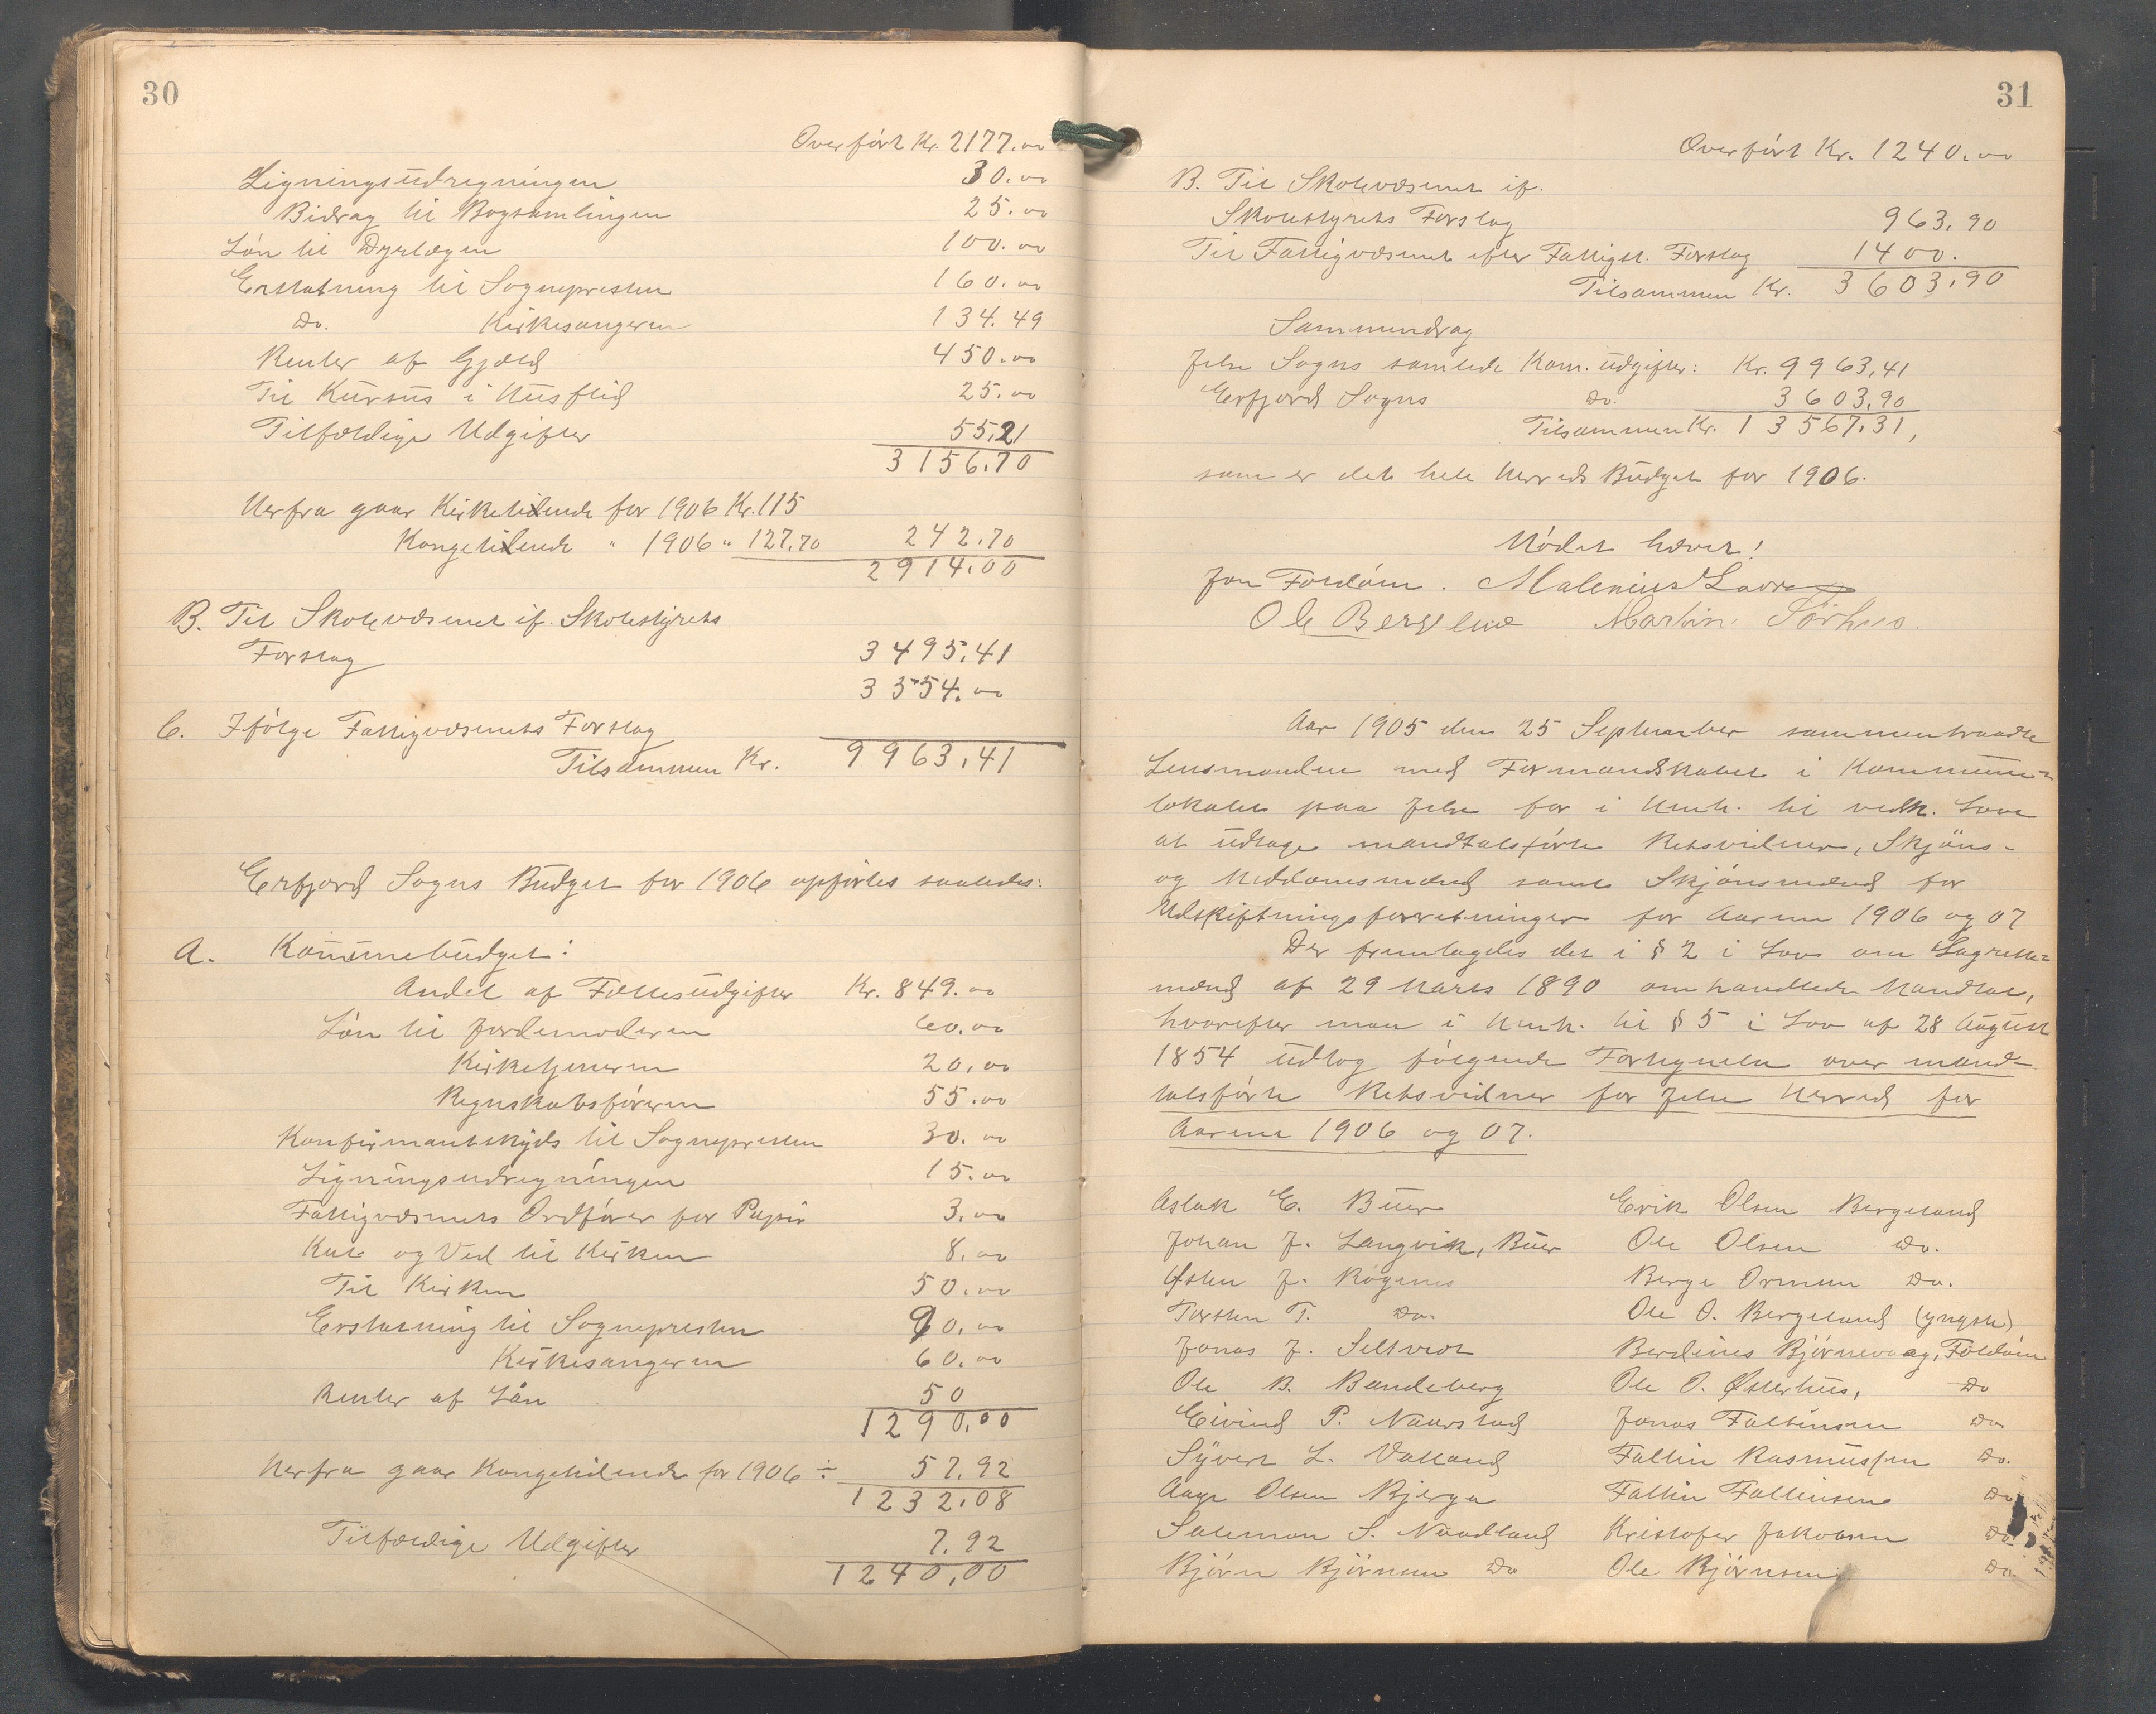 30
Overført Kr. 2177.00
Ligningsudregningen 30.00
Bidrag til Bogsamlingen 25.00
Løn til Dyrlægen 100.00
Erstatning til Sognepresten 160.00
Do. Kirkesangeren 134.49
Renter af Gjæld 450.00
Til Kursus i Husflid 25.00
Tilfældige Udgifter 55,21
3156.70
Herfra gaar Kirketiende for 1906 Kr. 115
Kongetiende " 1906 " 127.70 242.70
2914.00
B. Til Skolevæsenet if. Skolestyrets
Forslag 3495.41
3554.00
C. Ifølge Fattigvæsenets Forslag
Tilsammen Kr. 9963,41
Erfjord Sogns Budget for 1906 opførtes saaledes:
A. Kommunebudget:
Andel af Fællesudgifter Kr. 849.00
Løn til Jordemoderen 60.00
Kirketjeneren 20.00
Regnskabsføreren 55.00
Konfirmantskyds til Sognepresten 30.00
Ligningsudregningen 15.00
Fattigvæsenets Ordfører for Papir 3.00
Kul og Ved til Kirken 8.00
Til Kirken 50.00
Erstatning til Sognepresten 90.00
Kirkesangeren 60.00
Renter af Lån 50
1290.00
Herfra gaar Kongetiende for 1906 ÷ 57.92
1232.08
Tilfældige Udgifter 7.92
1240,00
31
Overført Kr. 1240.00
B. Til Skolevæsenet if.
Skolestyrets Forslag 963,90
Til Fattigvæsenet efter Fattigst. Forslag 1400.
Tilsammen Kr. 3603,90
Sammendrag
Jelse Sogns samlede Kom. udgifter: Kr. 9963,41
Erfjord Sogns Do. 3603,90
Tilsammen Kr. 13567.31,
som er det hele Herreds Budget for 1906.
Mødet hævet!
Jon Foldøen. Malenius Lavra
Ole Bergeland Martin Sørhus.
Aar 1905 den 25 September sammentraadte
Lensmanden med Formandskabet i Kommune-
lokalet paa Jelse for i Henh. til vedk. Love
at udtage mandtalsførte Retsvidner, Skjøns-
og Meddomsmænd samt Skjønsmænd for
Udskiftningsforretninger for Aarene 1906 og 07
Der fremlagdes det i § 2 i Lov om Lagrette-
mænd af 29 Marts 1890 omhandlede Mandtal,
hvorefter man i Henh. til § 5 i Lov af 28 August
1854 udtog følgende Fortegnelse over mand-
talsførte Retsvidner for Jelse Herred for
Aarene 1906 og 07.
Aslak E. Buer Erik Olsen Bergeland
Johan J. Langvik, Buer Ole Olsen Do.
Østen J. Høgenes Børge Ormsen Do.
Torsten T. Do. Ole O. Bergeland (yngste)
Jonas J. Seltveit Berdines Bjørnevaag, Foldøen
Ole B. Bandeberg Ole O. Østerhus, Do
Eivind P. Naavstad Jonas Faltinsen Do.
Syvert L. Valland Faltin Rasmussen Do.
Aage Olsen Bjerga Faltin Faltinsen Do
Salemon S. Naadland Kristofer Jakobsen Do.
Bjørn Bjørnsen Do Ole Bjørnsen Do.